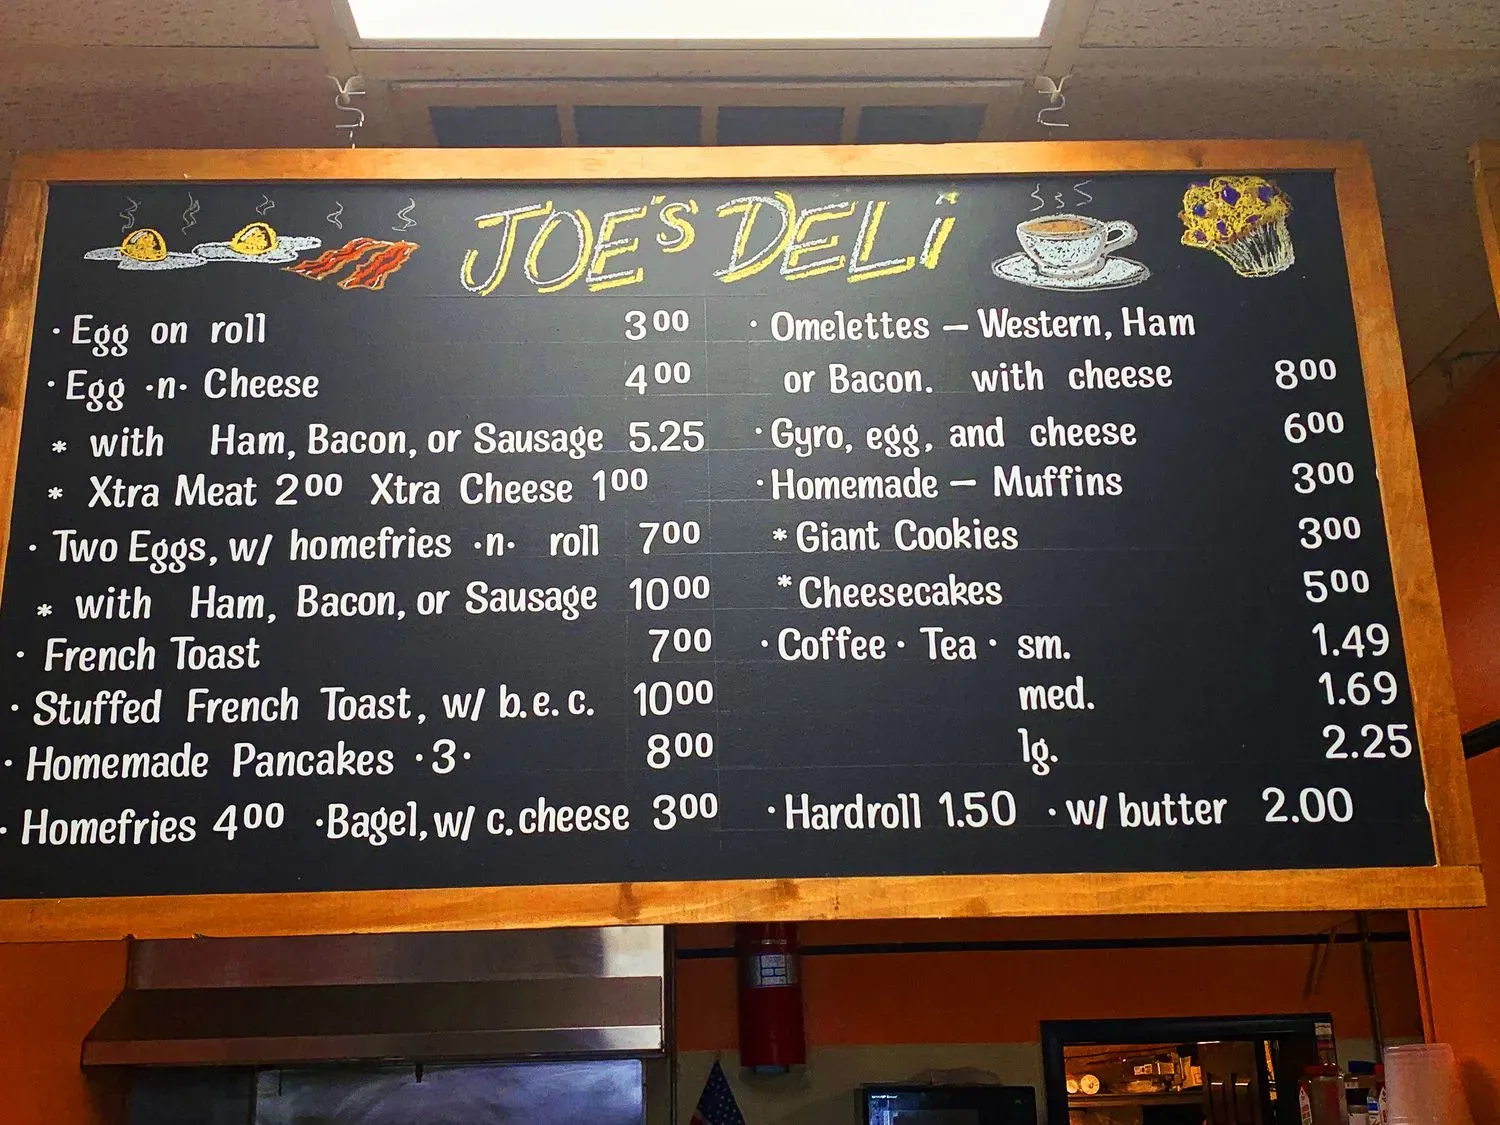 JOE'S DELi
· Egg on roll 3 00
· Egg ·n· Cheese 4 00
* with Ham, Bacon, or Sausage 5.25
* Xtra Meat 2 00 Xtra Cheese 1 00
· Two Eggs, w/ homefries ·n· roll 7 00
* with Ham, Bacon, or Sausage 10 00
· French Toast 7 00
· Stuffed French Toast, w/ b.e.c. 10 00
· Homemade Pancakes ·3· 8 00
· Homefries 4 00 ·Bagel, w/ c.cheese 3 00
· Omelettes – Western, Ham
or Bacon. with cheese 8 00
· Gyro, egg, and cheese 6 00
· Homemade – Muffins 3 00
* Giant Cookies 3 00
* Cheesecakes 5 00
· Coffee · Tea · sm. 1.49
med. 1.69
lg. 2.25
· Hardroll 1.50 · w/ butter 2.00